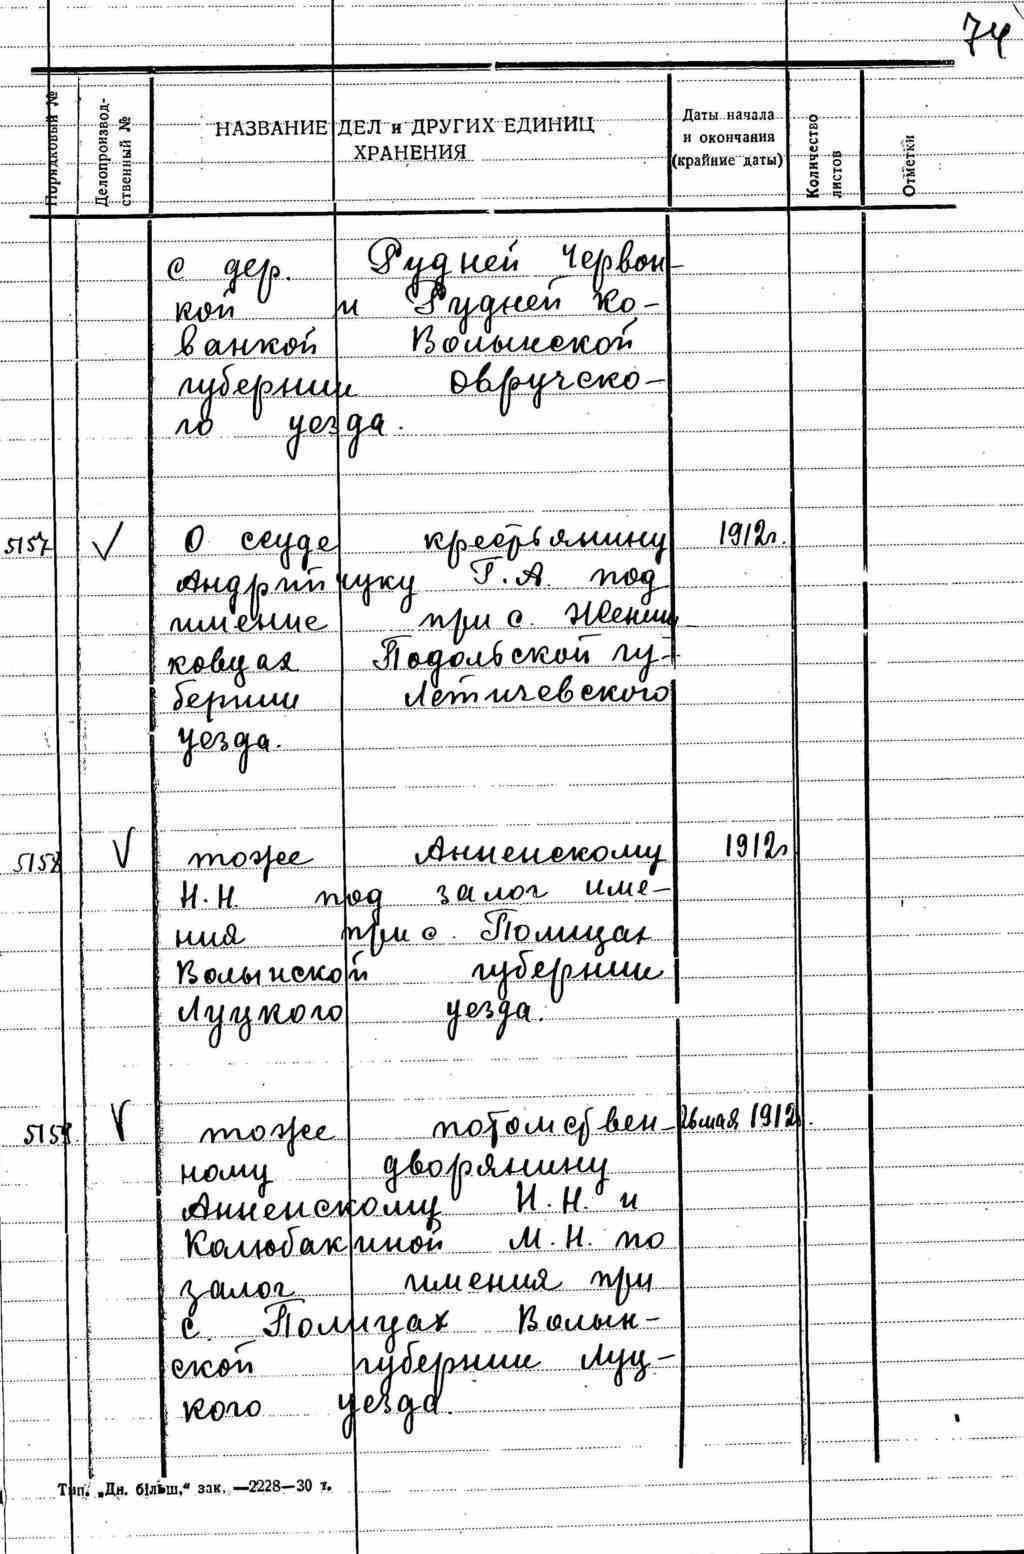 74
Порядковый №
Делопроизвод-
ственный №
НАЗВАНИЕ ДЕЛ и ДРУГИХ ЕДИНИЦ
ХРАНЕНИЯ
Даты начала
и окончания
(крайние даты)
Количество
листов
Отметки
с дер. Рудней Червон-
кой и Рудней Ко-
ванкой Волынской
губернии Овручско-
го уезда.
5157 √ О ссуде крестьянину 1912г.
Андрийчуку Г.А. под
имение при с. Жени
ковцах Подольской гу-
бернии Летичевского
уезда.
5158 √ тоже Анненскому 1912г
Н.Н. под залог име-
ния при с. Полицах
Волынской губернии
Луцкого уезда.
√ тоже потомствен- 26 мая 1912г.
ному дворянину
Анненскому Н.Н. и
Колюбакиной М.Н. по
залог имения при
с. Полицах Волын-
ской губернии Луц-
кого уезда.
Тип. „Дн. більш,“ зак. —2228—30 т.